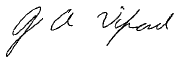 G A Vipond